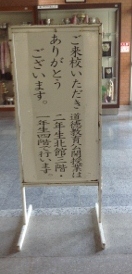 ご来校いただき
ありがとう
ございます。
道徳教育公開授業は
二年生北館二階・
一年生四階で行います。